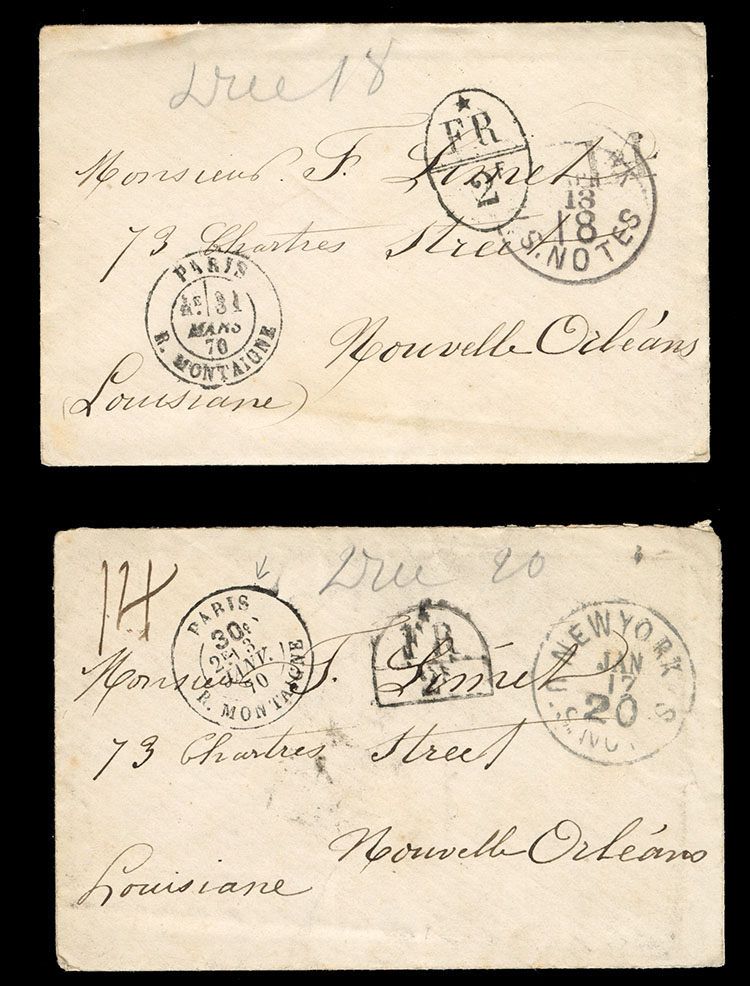 Due 18
★
FR
2
Monsieur. F. Limet
73 Chartres Street
S. NOTES
18
PARIS
31
MARS
70
R. MONTAIGNE
Nouvelle Orléans
(Louisiane)
Due 20
14
PARIS
30c
2E 3
JANV.
70
R. MONTAIGNE
FR
2
NEW YORK
JAN
17
20
U.S. NO
Monsieur F. Limet
73 Chartres Street
Nouvelle Orléans
Louisiane